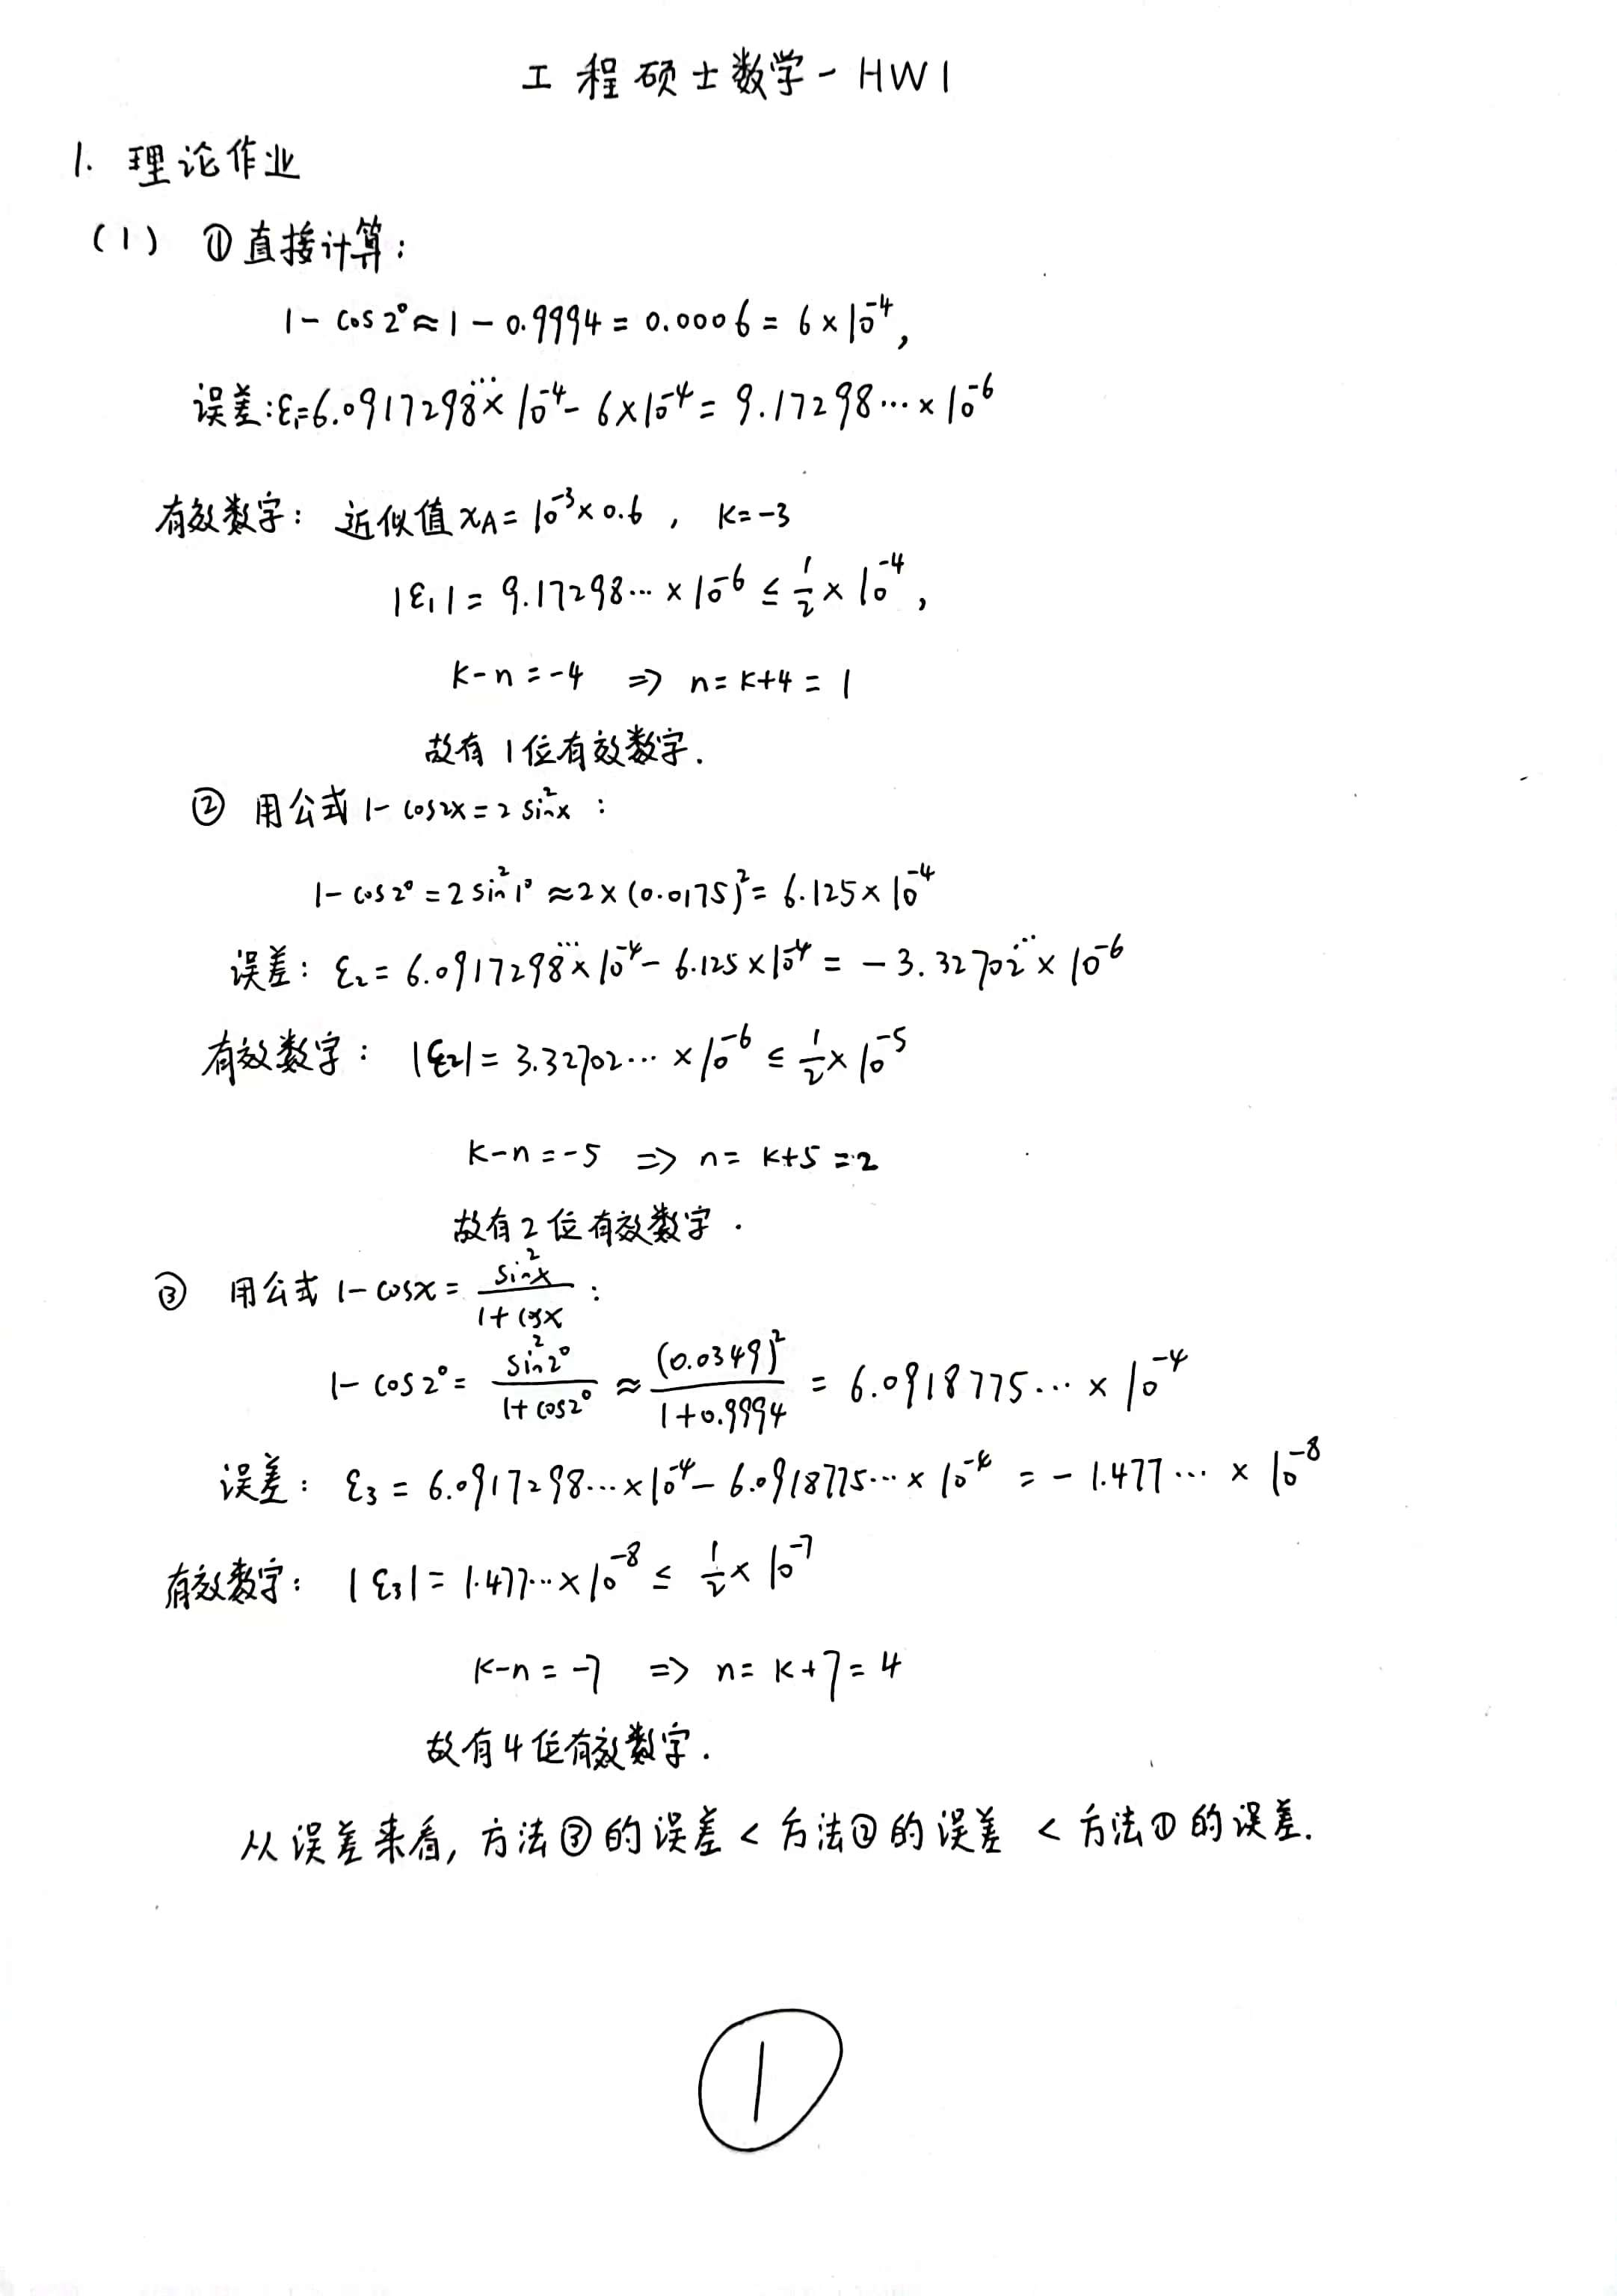 工程硕士数学-HW1
1. 理论作业
(1) ①直接计算:
1-cos2°≈1-0.9994=0.0006=6×10⁻⁴,
误差:ε₁=6.0917298…×10⁻⁴-6×10⁻⁴=9.17298…×10⁻⁶
有效数字: 近似值xA=10⁻³×0.6, K=-3
|ε₁|=9.17298…×10⁻⁶≤1/2×10⁻⁴,
k-n=-4 ⇒ n=k+4=1
故有1位有效数字.
② 用公式1-cos2x=2sin²x:
1-cos2°=2sin²1°≈2×(0.0175)²=6.125×10⁻⁴
误差: ε₂=6.0917298…×10⁻⁴-6.125×10⁻⁴=-3.32702…×10⁻⁶
有效数字: |ε₂|=3.32702…×10⁻⁶≤1/2×10⁻⁵
k-n=-5 ⇒ n=k+5=2
故有2位有效数字.
③ 用公式1-cosx=sin²x/(1+cosx):
1-cos2°=sin²2°/(1+cos2°)≈(0.0349)²/(1+0.9994)=6.0918775…×10⁻⁴
误差: ε₃=6.0917298…×10⁻⁴-6.0918775…×10⁻⁴=-1.477…×10⁻⁸
有效数字: |ε₃|=1.477…×10⁻⁸≤1/2×10⁻⁷
k-n=-7 ⇒ n=k+7=4
故有4位有效数字.
从误差来看,方法③的误差<方法②的误差<方法①的误差.
①